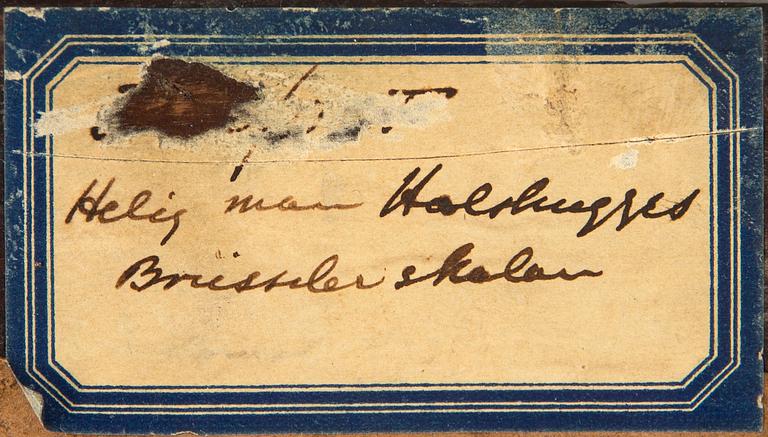 Helig man Halshugges
Brüsseler skolan